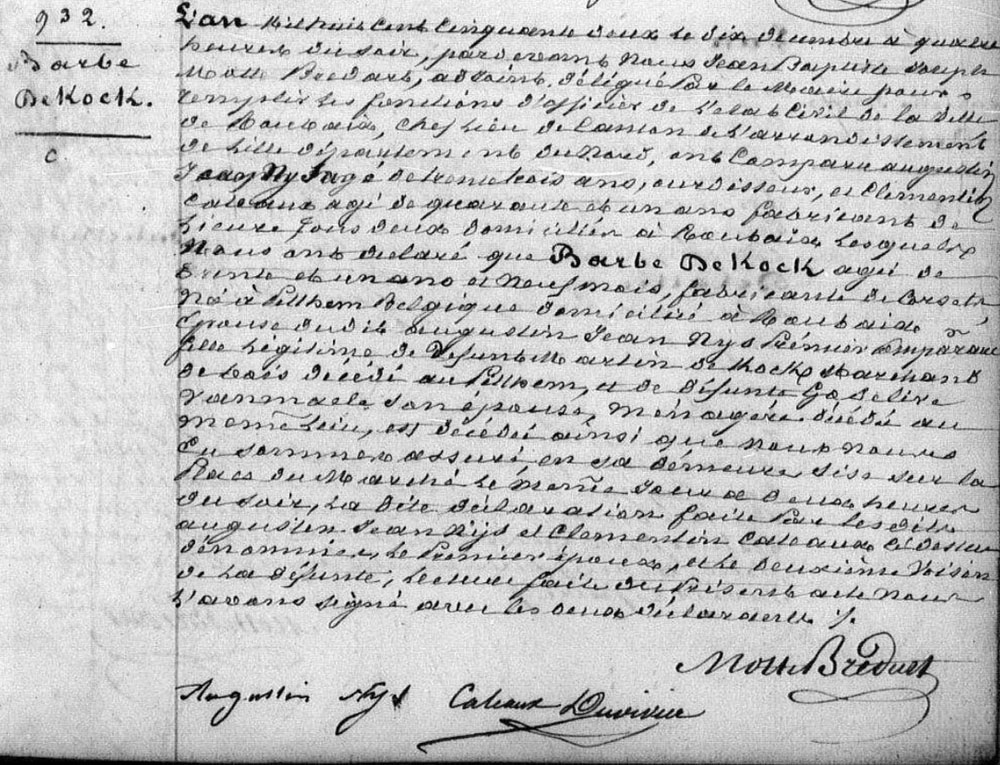 932.
Barbe
DeKock.
C.
L'an Mil huit Cent Cinquante deux le dix Decembre à quatre
heures du soir, pardevant Nous Jean Baptiste Joseph
Motte Bredart, adjoint délégué par le Maire pour
remplir les fonctions d'officier de L'etat Civil de la Ville
de Roubaix, Chef Lieu de Canton de L'arrondissement
de Lille département du Nord, ont Comparu augustin
Jean Nys agé de trente trois ans, ourdisseur, et Clementin
Cateaux agé de quarante et un ans fabricant de
tous deux domiciliés à Roubaix Lesquels
Nous ont declaré que Barbe DeKock agée de
trente et un ans et Neuf mois, fabricante de Corsets
Né à Pitthem Belgique domiciliée à Roubaix
Epouse du dit augustin Jean Nys Prémier Comparant
fille Légitime de Defunt Martin de Kock Marchand
de bois décédé au Pitthem, et de défunte Godelive
Vanmaele son épouse, Ménagere décédée au
meme Lieu, est décédée ainsi que nous nous
En sommes assuré en sa démeure sise sur la
Place du Marché le même Jour a Deux heures
du soir, La dite déclaration faite Par Les dits
augustin Jean Nys et Clementin Cateaux Ci dessus
dénommés, Le Premier époux, et Le deuxième Voisin
de La défunte, Lecture faite du Présent acte Nous
L'avons signé avec les deux déclarants ./.
Motte Bréduart
Augustin Nys Cateaux Duvivier